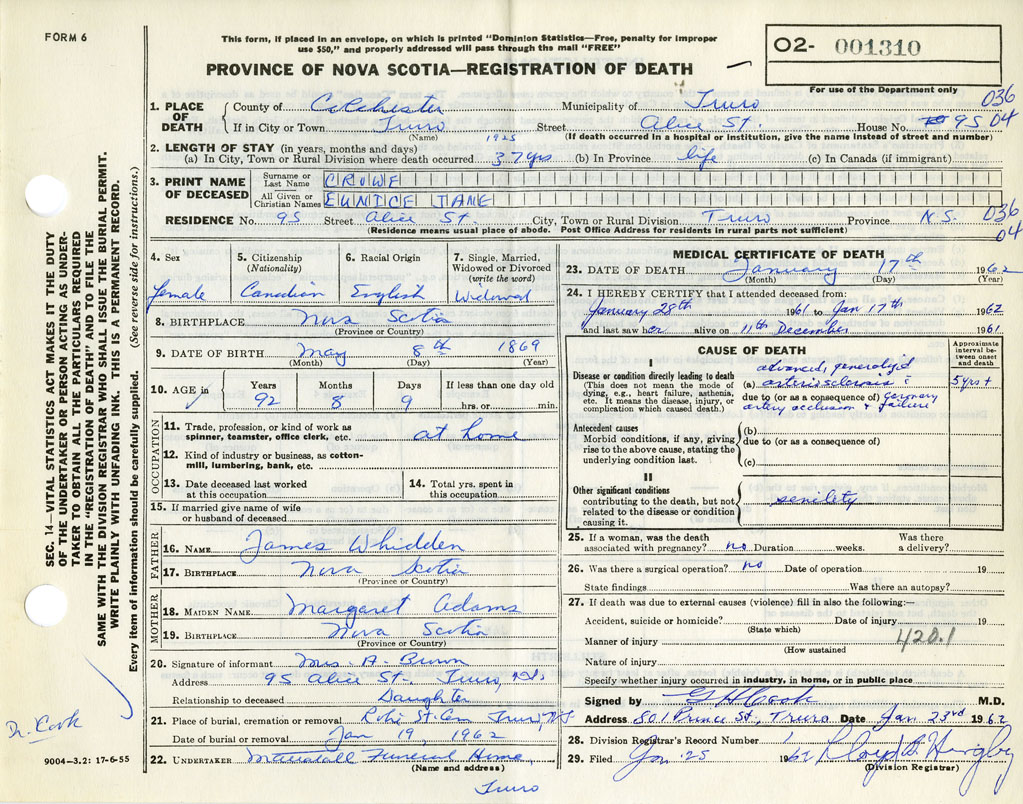 FORM 6
This form, if placed in an envelope, on which is printed "Dominion Statistics—Free, penalty for improper
use $50," and properly addressed will pass through the mail "FREE"
PROVINCE OF NOVA SCOTIA—REGISTRATION OF DEATH
02- 001310
For use of the Department only
036
04
1. PLACE OF DEATH
County of Colchester Municipality of Truro
If in City or Town Truro Street Alice St. House No. 95
(Name) (If death occurred in a hospital or institution, give the name instead of street and number)
1925
2. LENGTH OF STAY (in years, months and days)
(a) In City, Town or Rural Division where death occurred 37 yrs (b) In Province life (c) In Canada (if immigrant)
3. PRINT NAME OF DECEASED
Surname or Last Name CROWE
All Given or Christian Names EUNICE JANE
RESIDENCE No. 95 Street Alice St City, Town or Rural Division Truro Province N.S.
(Residence means usual place of abode. Post Office Address for residents in rural parts not sufficient)
036
04
4. Sex
female
5. Citizenship (Nationality)
Canadian
6. Racial Origin
English
7. Single, Married, Widowed or Divorced (write the word)
Widowed
8. BIRTHPLACE Nova Scotia
(Province or Country)
9. DATE OF BIRTH May 8th 1869
(Month) (Day) (Year)
10. AGE in Years Months Days If less than one day old
92 8 9 hrs. or min.
OCCUPATION
11. Trade, profession, or kind of work as spinner, teamster, office clerk, etc. at home
12. Kind of industry or business, as cotton-mill, lumbering, bank, etc.
13. Date deceased last worked at this occupation
14. Total yrs. spent in this occupation
15. If married give name of wife or husband of deceased
FATHER
16. NAME James Whidden
17. BIRTHPLACE Nova Scotia
(Province or Country)
MOTHER
18. MAIDEN NAME Margaret Adams
19. BIRTHPLACE Nova Scotia
(Province or Country)
20. Signature of informant Mrs. A. Brown
Address 95 Alice St. Truro, N.S.
Relationship to deceased Daughter
21. Place of burial, cremation or removal Cem Truro N.S.
Date of burial or removal Jan 19, 1962
22. UNDERTAKER Funeral Home
(Name and address)
Truro
MEDICAL CERTIFICATE OF DEATH
23. DATE OF DEATH January 17th 1962
(Month) (Day) (Year)
24. I HEREBY CERTIFY that I attended deceased from:
January 28th 1961 to Jan 17th 1962
and last saw her alive on 11th December 1961
CAUSE OF DEATH
Approximate interval between onset and death
I
Disease or condition directly leading to death
(This does not mean the mode of dying, e.g., heart failure, asthenia, etc. It means the disease, injury, or complication which caused death.)
advanced, generalized
(a) arteriosclerosis c̄ 5 yrs +
due to (or as a consequence of) coronary
artery occlusion & failure
Antecedent causes
Morbid conditions, if any, giving rise to the above cause, stating the underlying condition last.
(b)
due to (or as a consequence of)
(c)
II
Other significant conditions
contributing to the death, but not related to the disease or condition causing it.
senility
25. If a woman, was the death associated with pregnancy? no Duration weeks. Was there a delivery?
26. Was there a surgical operation? no Date of operation 19
State findings Was there an autopsy?
27. If death was due to external causes (violence) fill in also the following:—
Accident, suicide or homicide? Date of injury 19
(State which)
Manner of injury 420.1
(How sustained
Nature of injury
Specify whether injury occurred in industry, in home, or in public place
Signed by G H Cook M.D.
Address 801 Prince St., Truro Date Jan 23rd 1962
28. Division Registrar's Record Number 1
29. Filed Jan. 25 1962
(Division Registrar)
SEC. 14—VITAL STATISTICS ACT MAKES IT THE DUTY
OF THE UNDERTAKER OR PERSON ACTING AS UNDER-
TAKER TO OBTAIN ALL THE PARTICULARS REQUIRED
IN THE "REGISTRATION OF DEATH" AND TO FILE THE
SAME WITH THE DIVISION REGISTRAR WHO SHALL ISSUE THE BURIAL PERMIT.
WRITE PLAINLY WITH UNFADING INK. THIS IS A PERMANENT RECORD.
Every item of information should be carefully supplied. (See reverse side for instructions.)
Dr. Cook
9004—3.2: 17-6-55